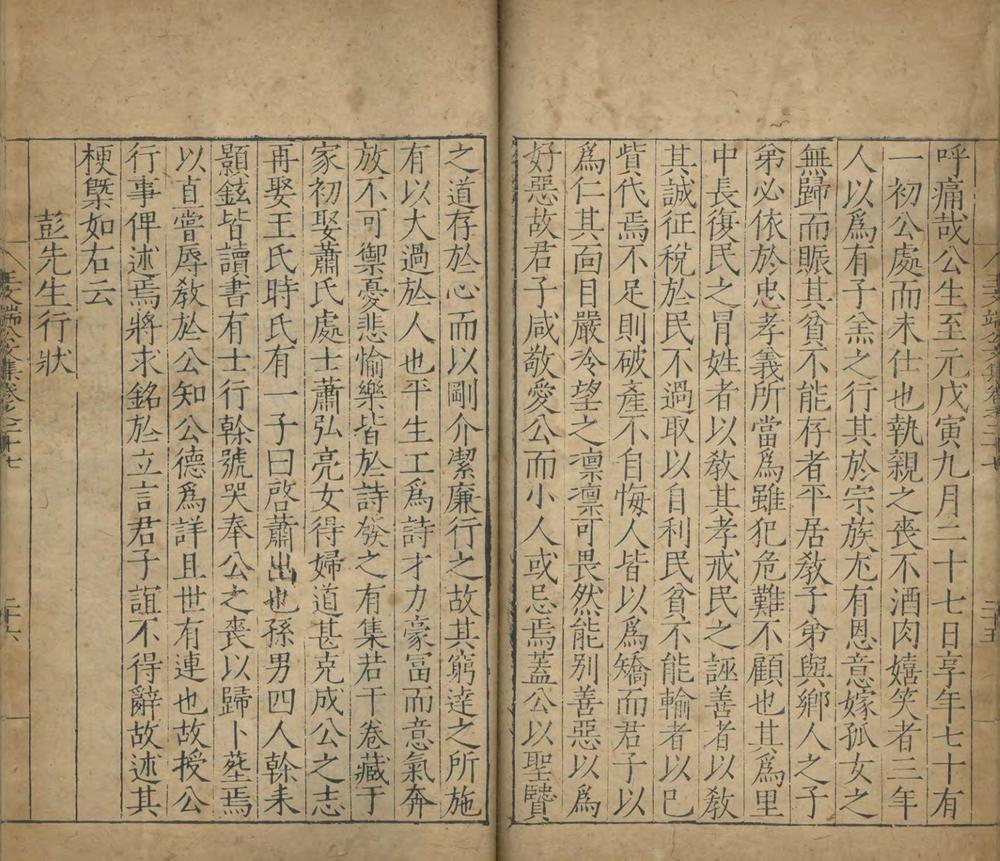 呼痛哉公生至元戊寅九月二十七日享年七十有
一初公處而未仕也執親之喪不酒肉嬉笑者三年
人以爲有子羔之行其於宗族尤有恩意嫁孤女之
無歸而賑其貧不能存者平居敎子弟與鄉人之子
弟必依於忠孝義所當爲雖犯危難不顧也其爲里
中長復民之冐姓者以敎其孝戒民之誣善者以敎
其誠征稅於民不過取以自利民貧不能輸者以已
貲代焉不足則破產不自悔人皆以爲矯而君子以
爲仁其面目嚴冷望之凛凛可畏然能别善惡以爲
好惡故君子咸敬愛公而小人或忌焉蓋公以聖賢
之道存於心而以剛介潔廉行之故其窮達之所施
有以大過於人也平生工爲詩才力豪富而意氣奔
放不可禦憂悲愉樂皆於詩發之有集若干卷藏于
家初娶蕭氏處士蕭弘亮女得婦道甚克成公之志
再娶王氏時氏有一子曰啓蕭出也孫男四人榦耒
顥鉉皆讀書有士行榦號哭奉公之喪以歸卜塟焉
以直嘗辱敎於公知公德爲詳且世有連也故授公
行事俾述焉將求銘於立言君子誼不得辭故述其
梗槩如右云
彭先生行狀
二十六